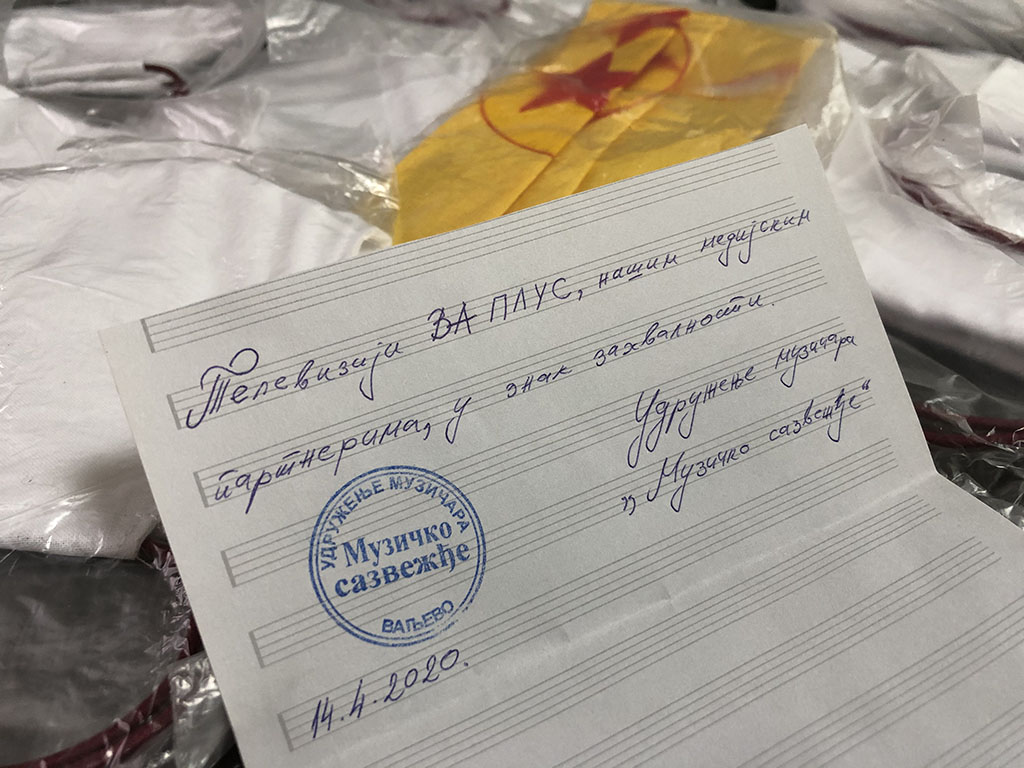 Телевизији ВА ПЛУС, нашим медијским
партнерима, у знак захвалности.
Удружење музичара
„Музичко сазвежђе“
УДРУЖЕЊЕ МУЗИЧАРА
Музичко
сазвежђе
ВАЉЕВО
14.4.2020.